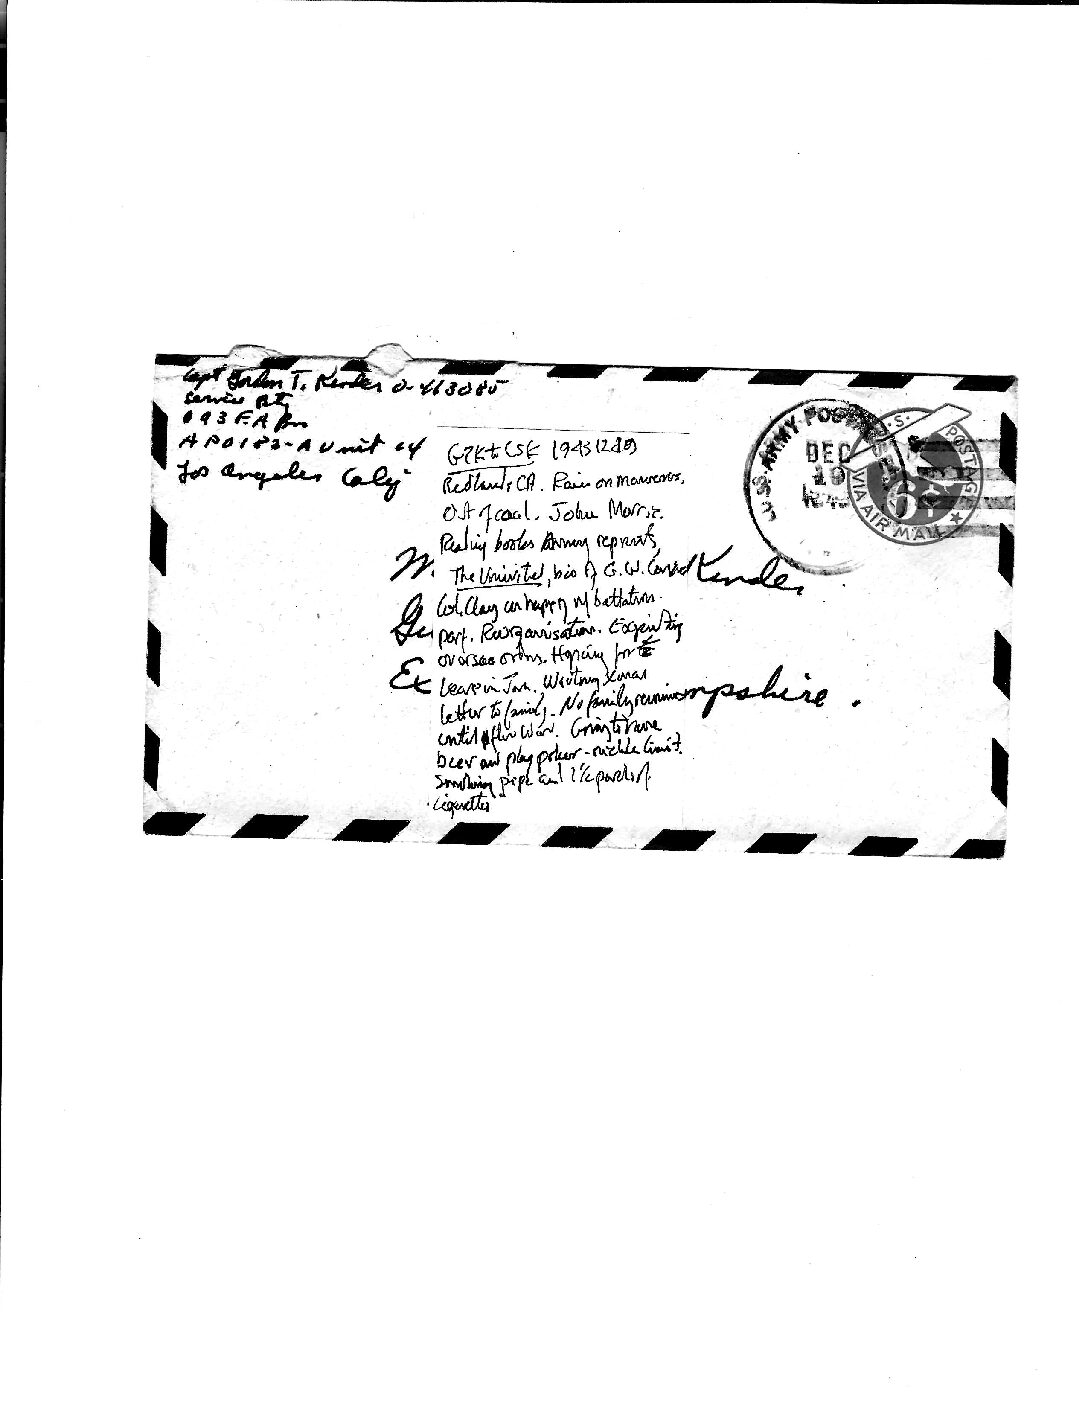 Capt Gordon T. Kender O-463085
Service Bty
693 F.A Bn
APO 183-A Unit 04
Los Angeles Calif
GTK to CSK 19431219
Redlands, CA. Rain on maneuvers.
Out of coal. John Morris.
Reading books Army reprints,
The Uninvited, bio of G. W.
Col. Clay unhappy w/ battalion
perf. Reorganisation. Expecting
overseas orders. Hoping for
leave in Jan. Writing Xmas
letter to family. No family reunion
until after War. Going to have
beer and play poker - nickle limit.
Smoking pipe and 1 1/2 packs of
cigarettes
M.
Kender
Ex
mpshire.
U.S. ARMY POSTAL
DEC
19
U.S. POSTAGE
VIA AIR MAIL
6¢